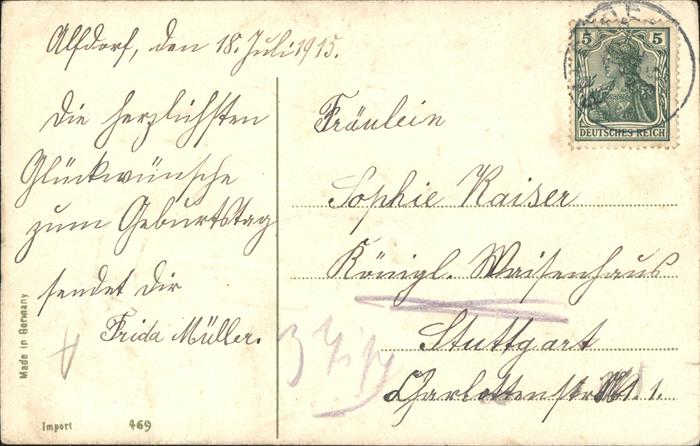 Alfdorf, den 18. Juli 1915.
Die herzlichsten
Glückwünsche
zum Geburtstag
sendet Dir
Frida Müller.
Fräulein
Sophie Kaiser
Königl. Waisenhaus
Stuttgart
Charlottenstr.
5 5
DEUTSCHES REICH
Made in Germany
Import 469